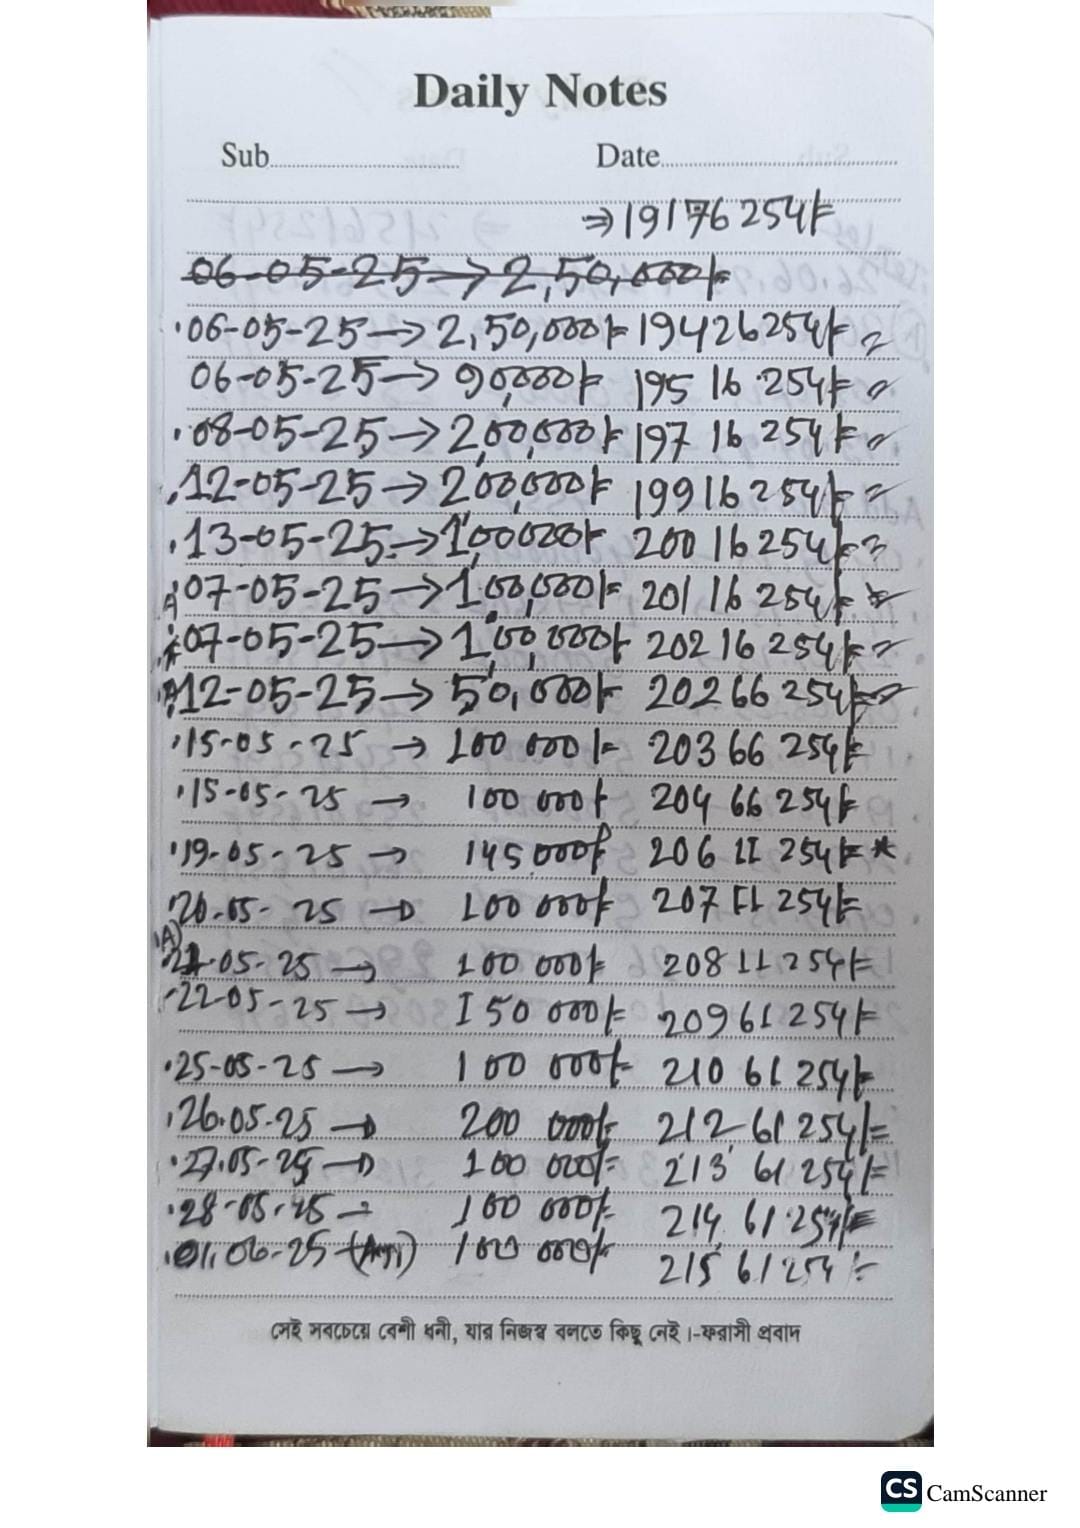 Daily Notes
Sub.................... Date....................
⇒ 19176254/=
06-05-25 → 2,50,000/=
06-05-25 → 2,50,000/= 19426254/=
06-05-25 → 90,000/= 19516254/=
08-05-25 → 2,00,000/= 19716254/=
12-05-25 → 200,000/= 19916254/=
13-05-25 → 1,00000/= 20016254/=
07-05-25 → 1,00,000/= 20116254/=
07-05-25 → 1,00,000/= 20216254/=
12-05-25 → 50,000/= 20266254/=
15-05-25 → 100 000/= 203 66 254/=
15-05-25 → 100 000/= 204 66 254/=
19-05-25 → 145,000/= 206 11 254/= *
20-05-25 → 100 000/= 207 11 254/=
A)
21-05-25 → 100 000/= 208 11 254/=
22-05-25 → 150 000/= 209 61 254/=
25-05-25 → 100 000/= 210 61 254/=
26.05-25 → 200 000/= 212 61 254/=
27.05-25 → 100 000/= 213 61 254/=
28-05-25 → 100 000/= 214 61 254/=
01.06-25 100 000/= 215 61 254/=
সেই সবচেয়ে বেশী ধনী, যার নিজস্ব বলতে কিছু নেই।-ফরাসী প্রবাদ
CS CamScanner